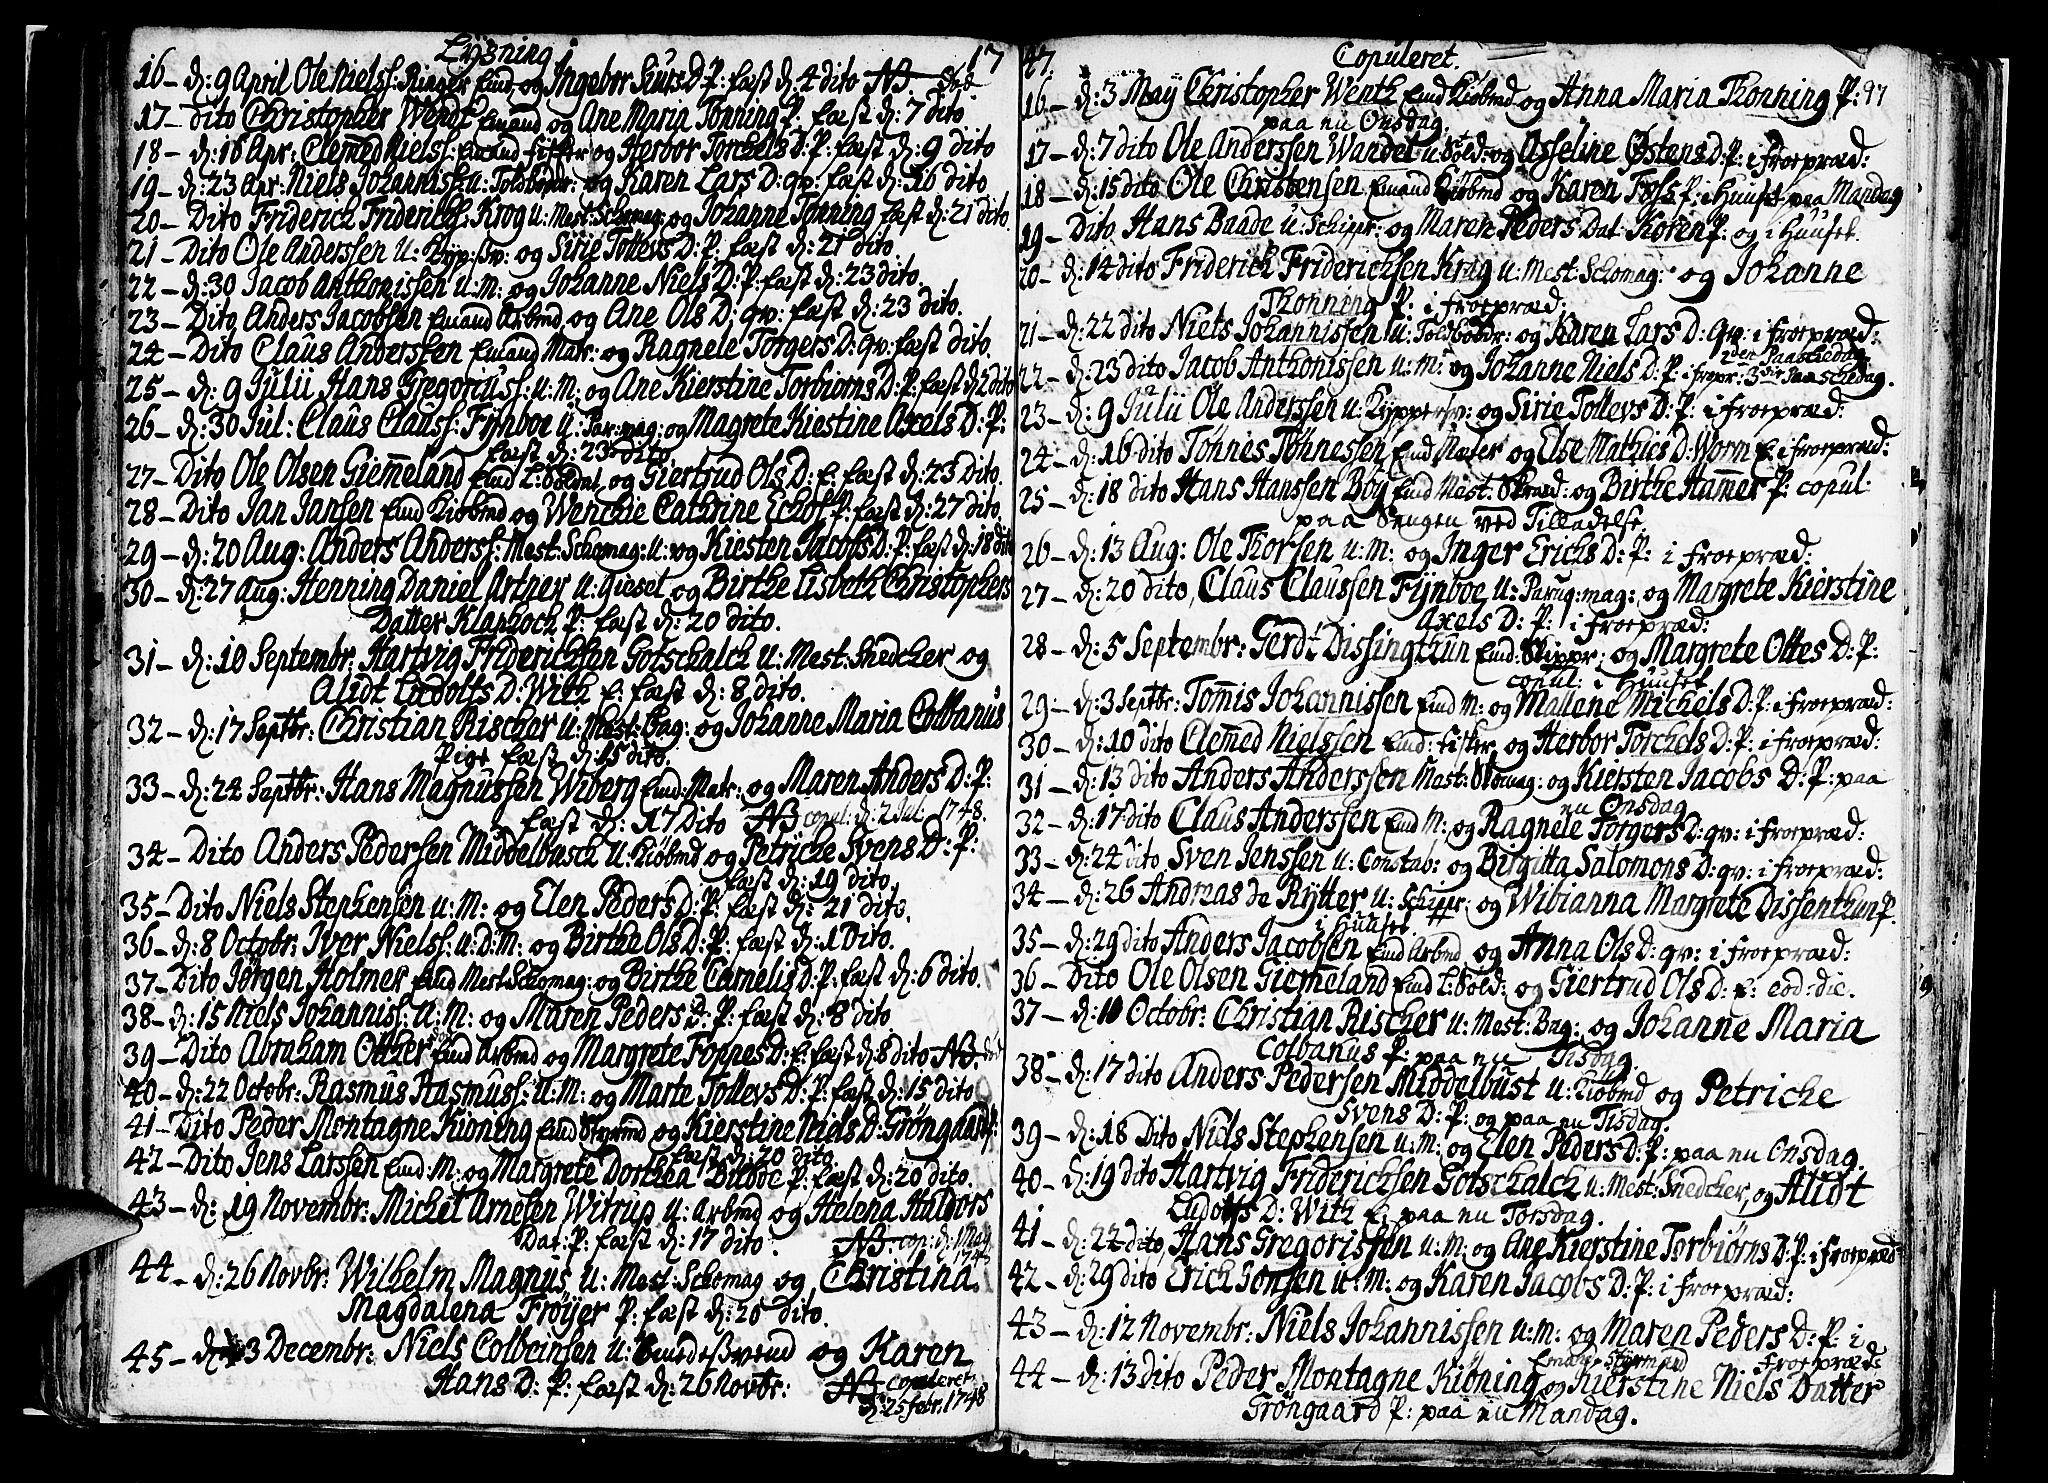 Lysning
17
16 – d: 9 April Ole Niels: Ringer Emd og Ingebor Siurs D: P: fæst d: 4 dito NB død
17 – dito Christopher Wendt Emand og Ane Maria Tonning P. fæst d: 7 dito
18 – d: 16 Apr: Clemed Niels: Emand fisker og Herbor Torchels D: P: fæst d: 9 dito
19 – d: 23 Apr: Niels Johanniss: u: Toldbodkr: og Karen Lars D: qv: fæst d: 16 dito
20 – Dito Friderich Friderichs: Krog u: Mest: Schomag: og Johanne Tonning fæst d: 21 dito.
21 – Dito Ole Anderssen u: Kyp: sv: og Sirie Tollevs D: P: fæst d: 21 dito
22 – d: 30 Jacob Anthonissen u: m: og Johanne Niels D: P: fæst d: 23 dito.
23 – Dito Anders Jacobsen Emand Arbmd og Ane Ols D: qv: fæst d: 23 dito.
24 – Dito Claus Anderssen Emand Matr: og Ragnele Torgers D: qv: fæst dito.
25 – d: 9 Julii Hans Gregoriuss: u: M: og Ane Kierstine Torbiorns D: P: fæst d: 2 dito
26 – d: 30 Jul: Claus Clauss: Fÿnboe u: Par: mag: og Magrete Kiestine Axels D: P:
fæst d: 23 dito.
27 – Dito Ole Olsen Giemeland Emd L: Soldat og Giertrud Ols D: E. fæst d: 23 Dito.
28 – Dito Jan Jansen Emd Kiobmd og Wenchie Cathrine Echof P: fæst d: 27 dito.
29 – d: 20 Aug: Anders Anderss: Mest: Schomag: u: og Kiesten Jacobs D: P: fæst d: 18 dito
30 – d: 27 Aug: Henning Daniel Artner u: Gieset og Birthe Lisbeth Christophers
Datter Klaphoch P: fæst d: 20 dito.
31 – d: 10 Septembr: Hartvig Friderichsen Gotschalch u: Mest: Snedcher og
Alidt Ludolfs D: With E: fæst d: 8 dito.
32 – d: 17 Septbr: Christian Rischer u: Mest: Bag: og Johanne Maria Colbanus
Pige fæst d: 15 dito.
33 – d: 24 Septbr: Hans Magnussen Wiberg Emd: Matr: og Maren Anders D: P:
fæst d: 17 Dito NB copul: d: 2 Jul: 1748.
34 – Dito Anders Pedersen Middelbusch u: Kiobmd og Petriche Svens D: P:
fæst d: 19 dito.
35 – Dito Niels Stephensen u: M: og Elen Peders D: P: fæst d: 21 dito.
36 – d: 8 Octobr: Iver Niels: u: D: M: og Birthe Ols D: P: fæst d: 1 Dito.
37 – Dito Jørgen Holmer Emd Mest Schomag: og Birthe Cornelis D: P: fæst d: 6 dito.
38 – d: 15 Niels Johanniss: u: M: og Maren Peders D: P: fæst d: 8 dito
39 – Dito Abraham Otther Emd Arbmd og Margrete Fopnes D: E: fæst d: 8 dito NB død
40 – d: 22 Octobr: Rasmus Rasmuss: u: M: og Marte Tollevs D: P: fæst d: 15 dito
41 – Dito Peder Montagne Kiöning Emd Styrmd og Kierstine Niels D: Gröngaard P:
fæst d: 20 dito
42 – Dito Jens Larssen Emd: M: og Margrete Dorthea Buboe P: fæst d: 20 dito.
43 – d: 19 Novembr: Michel Arnesen Witrup u: Arbmd og Helena Haldors
Dat: P: fæst d: 17 dito. NB: cop: d: 1 May 174
44 – d: 26 Novbr: Wilhelm Magnus, u: Mest: Schomag og Christina
Magdalena Frøyer P: fæst d: 25 dito.
45 – d: 3 Decembr: Niels Colbeinsen u: Smedesvend og Karen
Hans D: P: fæst d: 26 Novbr: NB copuleret
d: 25 febr: 1748
47.
Copuleret.
97
16 – d: 3 May Christopher Wenth Emd Kiöbmd og Anna Maria Thonning P:
paa nu Onsdag.
17 – d: 7 dito Ole Anderssen Wandel u: Sold: og Asseline Østens D: P: i Froepræd:
18 – d: 15 dito Ole Christensen Emand Kiøbmd og Karen Fols P: i Huuset paa Mandag
19 – Dito Hans Baade u: Schippr: og Maren Peders Dat: Koren P: og i Huuset.
20 – d: 14 dito Friderich Friderichsen Krug u: Mest: Schomag: og Johanne
Thonning P: i Froepræd:
21 – d: 22 dito Niels Johannissen u: Toldbodkr: og Karen Lars D: qv: i Froepræd:
2den Paaschedag
22 – d: 23 dito Jacob Anthonissen u: m: og Johanne Niels D: P: i frepr: 3die Paaschedag.
23 – d: 9 Julii Ole Anderssen u: Kyppersv: og Sirie Tollevs D: P: i Froepræd:
24 – d: 16 dito Töhnes Töhnesen Emd Mæler og Else Mathies D: Worn E: i Froepræd:
25 – d: 18 dito Hans Hanssen Böÿ Emd Mest: Skræd: og Birthe Hamer P: copul:
paa Sengen ved Tilladelse.
26 – d: 13 Aug: Ole Thorsen u: m: og Inger Erichs D: P: i Froepræd:
27 – d: 20 dito, Claus Claussen Fÿnboe u: Paruq: mag: og Margrete Kierstine
Axels D: P: i Froepræd:
28 – d: 5 Septembr: Gerdt Dissingthun Emd: Skippr: og Margrete Ottes D: P:
copul: i Huuset
29 – d: 3 Septbr: Tomis Johannissen Emd M: og Mallene Michels D: P: i Froepræd:
30 – d: 10 dito Clemed Nielssen Emd: fisker og Herbor Torchels D: P: i Froepræd:
31 – d: 13 dito Anders Anderssen Mest: Skomag: og Kiersten Jacobs D: P: paa
nu Onsdag
32 – d: 17 dito Claus Anderssen Emd M: og Ragnele Torgers D: qv: i Froepræd:
33 – d: 24 dito Sven Jenssen u: Constab: og Birgitta Salomons D: qv: i Froepræd:
34 – d: 26 Andreas de Rÿtter u: Schippr: og Wibianna Margrete Dissenthun P.
i Huuset
35 – d: 29 dito Anders Jacobsen Emd Arbmd og Anna Ols D: qv: i Froepræd:
36 – Dito Ole Olsen Giemeland Emd L: Sold: og Giertrud Ols D: E: eod: die.
37 – d: 10 Octobr: Christian Rischer u: Mest: Bag: og Johanne Maria
Colbanus P: paa nu Tisdag
38 – d: 17 dito Anders Pedersen Middelbust u: Kiobmd og Petriche
Svens D: P: og paa nu Tisdag.
39 – d: 18 Dito Niels Stephensen u: m: og Elen Peders D: P: paa nu Onsdag.
40 – d: 19 dito Hartvig Friderichsen Gotschalch u: Mest: Snedcher, og Alidt
Ludolfs D: With E: paa nu Torsdag.
41 – d: 22 dito, Hans Gregorissen u: m: og Ane Kierstine Torbiørns D: P: i Froepræd
42 – d: 29 dito Erich Jonsen u: m: og Karen Jacobs D: P: i Froepræd:
43 – d: 12 Novembr: Niels Johannissen u: m: og Maren Peders D: P: i
Froepræd:
44 – d: 13 dito Peder Montagne Kiöning Emand Styrmand og Kierstine Niels Datter
Gröngaard P: paa nu Mandag.